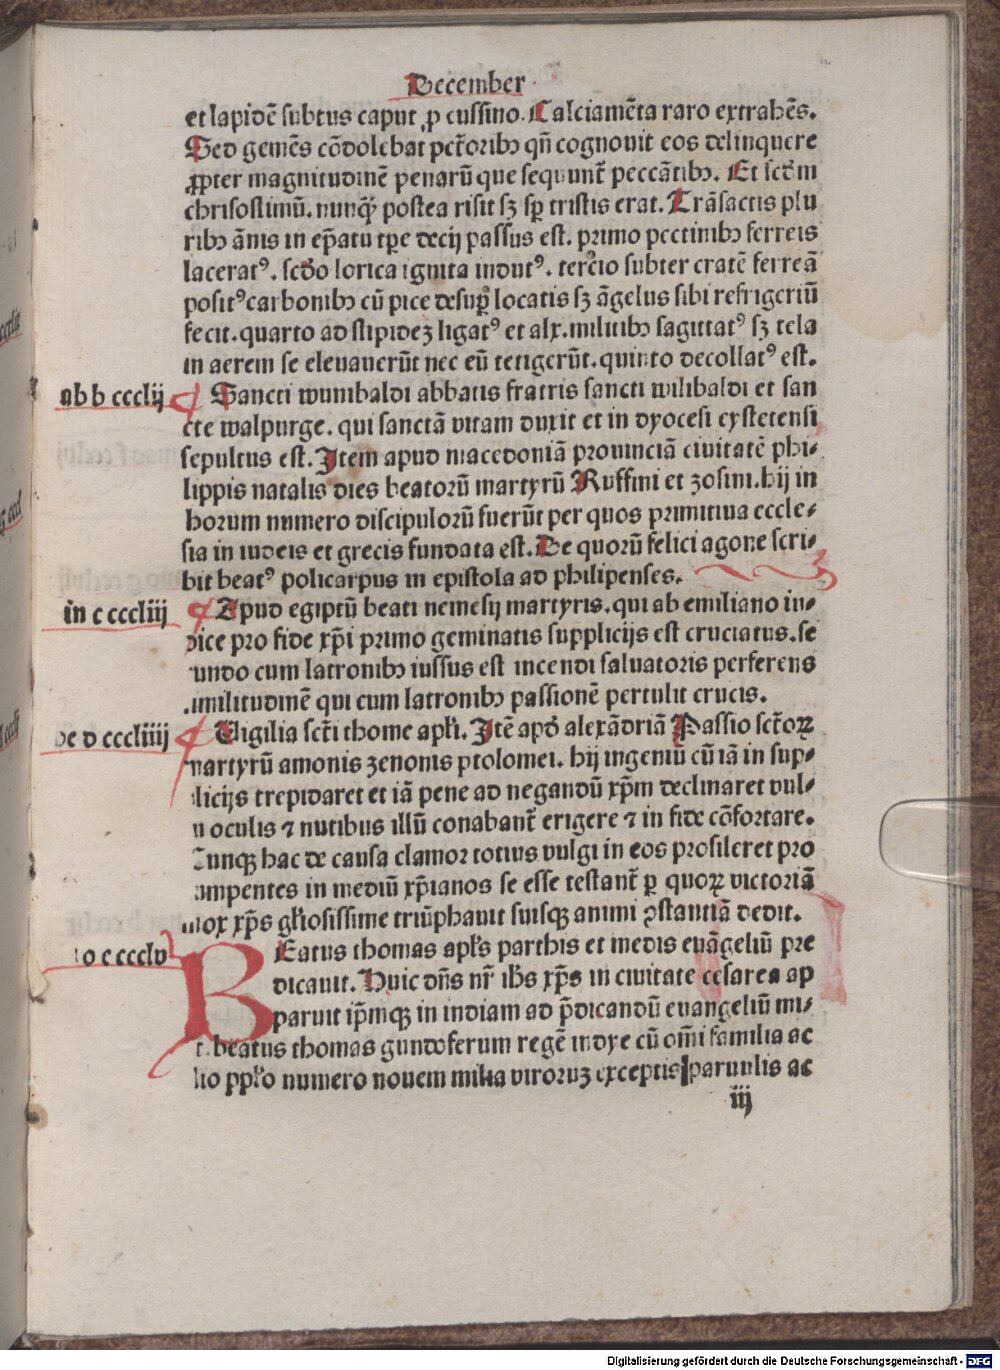 December
et lapidē subtus caput ꝓ cussino. Calciamēta raro extrahēs.
Sed gemēs cōdolebat pctōribꝰ qn̄ cognouit eos delinquere
ꝓpter magnitudinē penarū que sequunt᷑ peccātibꝰ. Et scd̓m
chrisostimū. nunqᷓ postea risit sꝫ sp̄ tristis erat. Trāsactis plu
ribꝰ ānis in ep̄atu tp̄e decij passus est. primo pectinibꝰ ferreis
laceratꝰ. scd̓o lorica ignita indutꝰ. tercio subter cratē ferreā
positꝰ carbonibꝰ cū pice desup̄ locatis sꝫ āgelus sibi refrigeriū
fecit. quarto ad stipidez ligatꝰ et alx. militibꝰ sagittatꝰ sꝫ tela
in aerem se eleuauerūt nec eū tetigerūt. quinto decollatꝰ est.
ab b ccclij ¶ Sancti wunibaldi abbatis fratris sancti wilibaldi et san
cte walpurge. qui sanctā vitam duxit et in dyocesi eystetensi
sepultus est. Item apud macedoniā prouinciā ciuitatē phi⸗
lippis natalis dies beatorū martyrū Ruffini et zosini. hij in
horum numero discipulorū fuerūt per quos primitiua eccle⸗
sia in iudeis et grecis fundata est. De quorū felici agone scri⸗
bit beatꝰ policarpus in epistola ad philipenses.
in c cccliij ¶ Apud egiptū beati nemesij martyris. qui ab emiliano iu⸗
dice pro fide xp̄i primo geminatis supplicijs est cruciatus. se
undo cum latronibꝰ iussus est incendi saluatoris perferens
imilitudinē qui cum latronibꝰ passionē pertulit crucis.
de d cccliiij ¶ Uigilia scti thome apl̓i. Itē apd̓ alexādriā Passio sctōꝝ
martyrū amonis zenonis ptolomei. hij ingeniū cū iā in sup⸗
licijs trepidaret et iā pene ad negandū xp̄m declinaret vul⸗
u oculis ⁊ nutibus illū conabant᷑ erigere ⁊ in fide cōfortare.
Cunqꝫ hac de causa clamor totius vulgi in eos prosileret pro
umpentes in mediū xp̄ianos se esse testant᷑ ꝑ quoꝝ victoriā
mox xp̄s gl̓iosissime triūphauit suisqꝫ animi ꝯstantiā dedit.
o e ccclv BEatus thomas apl̓s parthis et medis euāgeliū pre
dicauit. Huic dn̄s nr̄ ih̄s xp̄s in ciuitate cesarea ap
paruit ip̄mqꝫ in indiam ad p̄dicandū euangeliū mi⸗
t. beatus thomas gundoferum regē indye cū om̄i familia ac
lio ppl̓o numero nouem milia viroruꝫ exceptis paruulis ac
iij
Digitalisierung gefördert durch die Deutsche Forschungsgemeinschaft - DFG